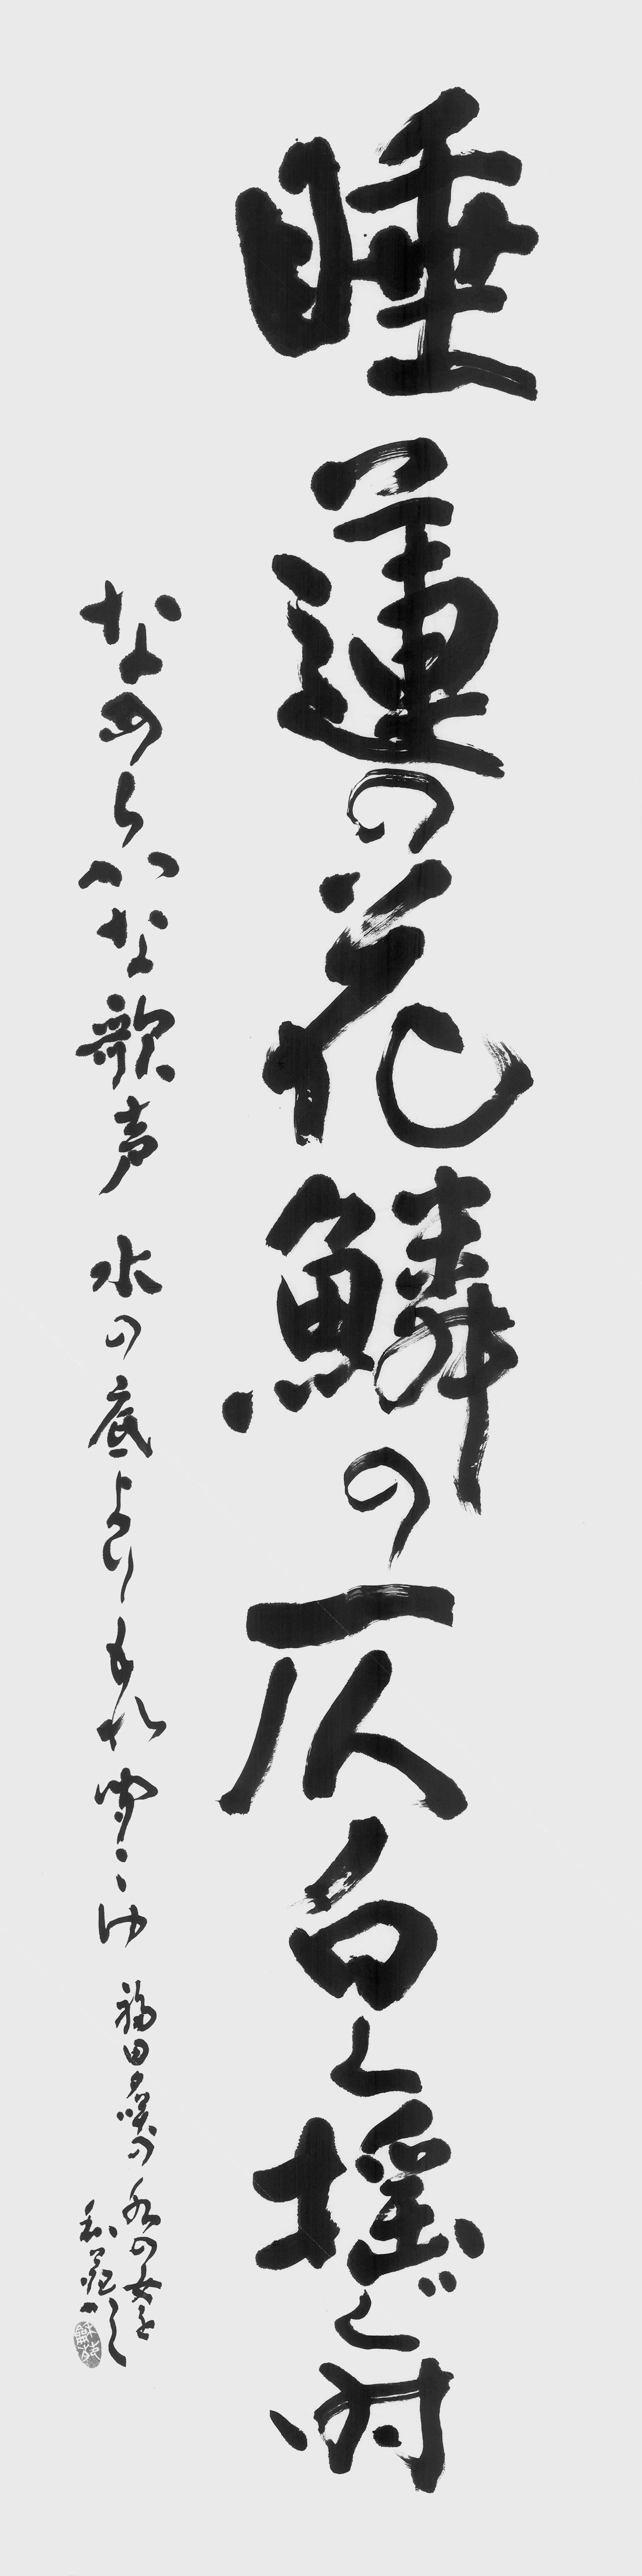 睡蓮の花鱗の仄白く揺ぐ時
なめらかな歌声 水の底よりもれ聞こゆ
福田夕咲の
水の女を